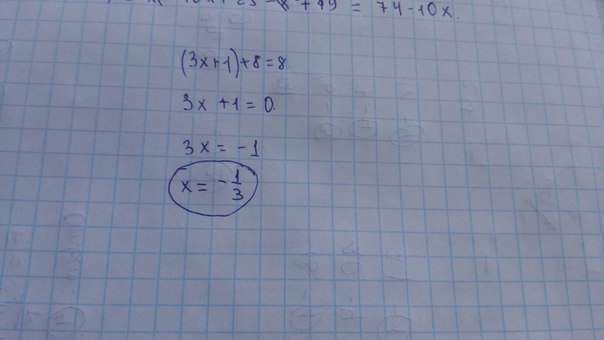 + 49 = 74 - 10x.
(3x+1)+8=8
3x+1=0.
3x = -1
x = -1/3